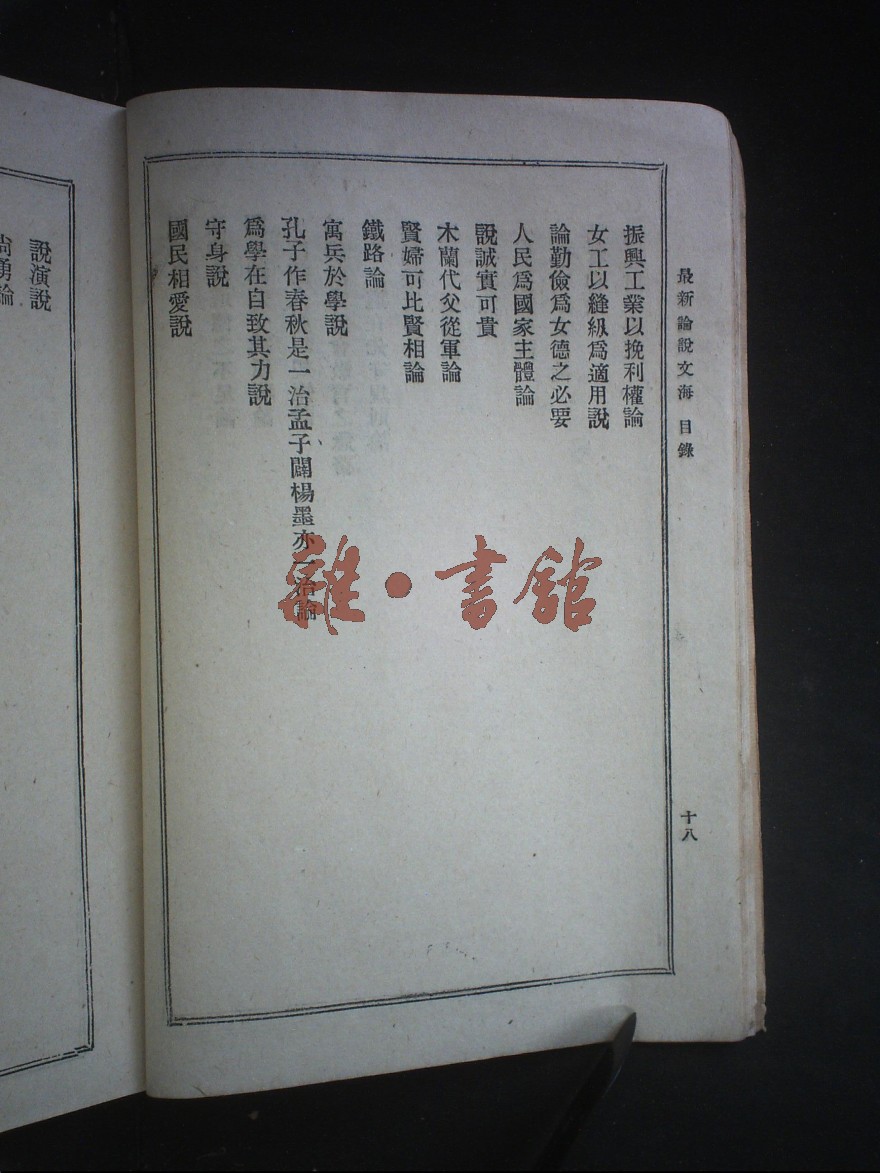 最新論說文海 目錄
十八
振興工業以挽利權論
女工以縫紉爲適用說
論勤儉爲女德之必要
人民爲國家主體論
說誠實可貴
木蘭代父從軍論
賢婦可比賢相論
鐵路論
寓兵於學說
孔子作春秋是一治孟子闢楊墨亦一治論
爲學在自致其力說
守身說
國民相愛說
說演說
尚勇論
雜·書館